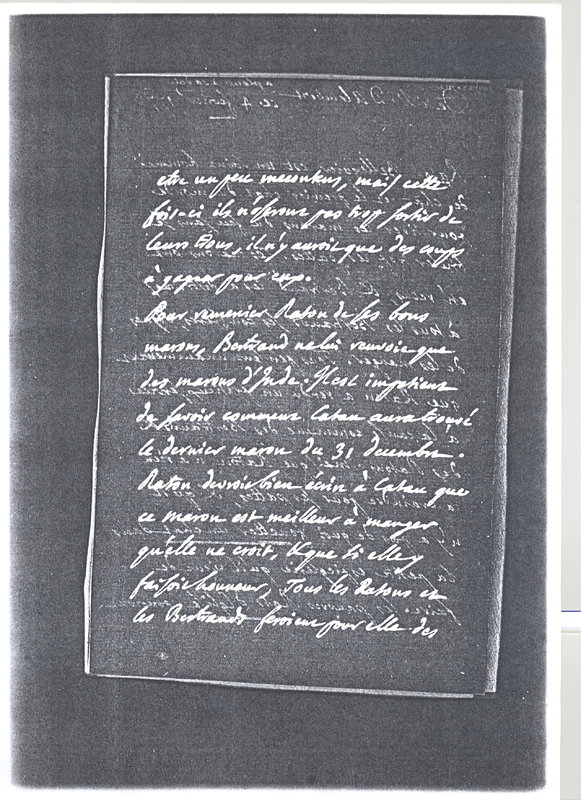 etre un peu mecontens, mais cette
fois-ci ils n'oseront pas trop sortir de
leurs trous, il n'y auroit que des coups
à gagner pour eux.
Pour remercier Raton de ses bons
marons, Bertrand ne lui renvoie que
des marons d'Inde. Il est impatient
de savoir comment Catau aura trouvé
le dernier maron du 31 decembre.
Raton devroit bien écrire à Catau que
ce maron est meilleur à manger
qu'elle ne croit, & que si elle y
faisoit honneur, Tous les Ratons et
les Bertrands feroient pour elle des